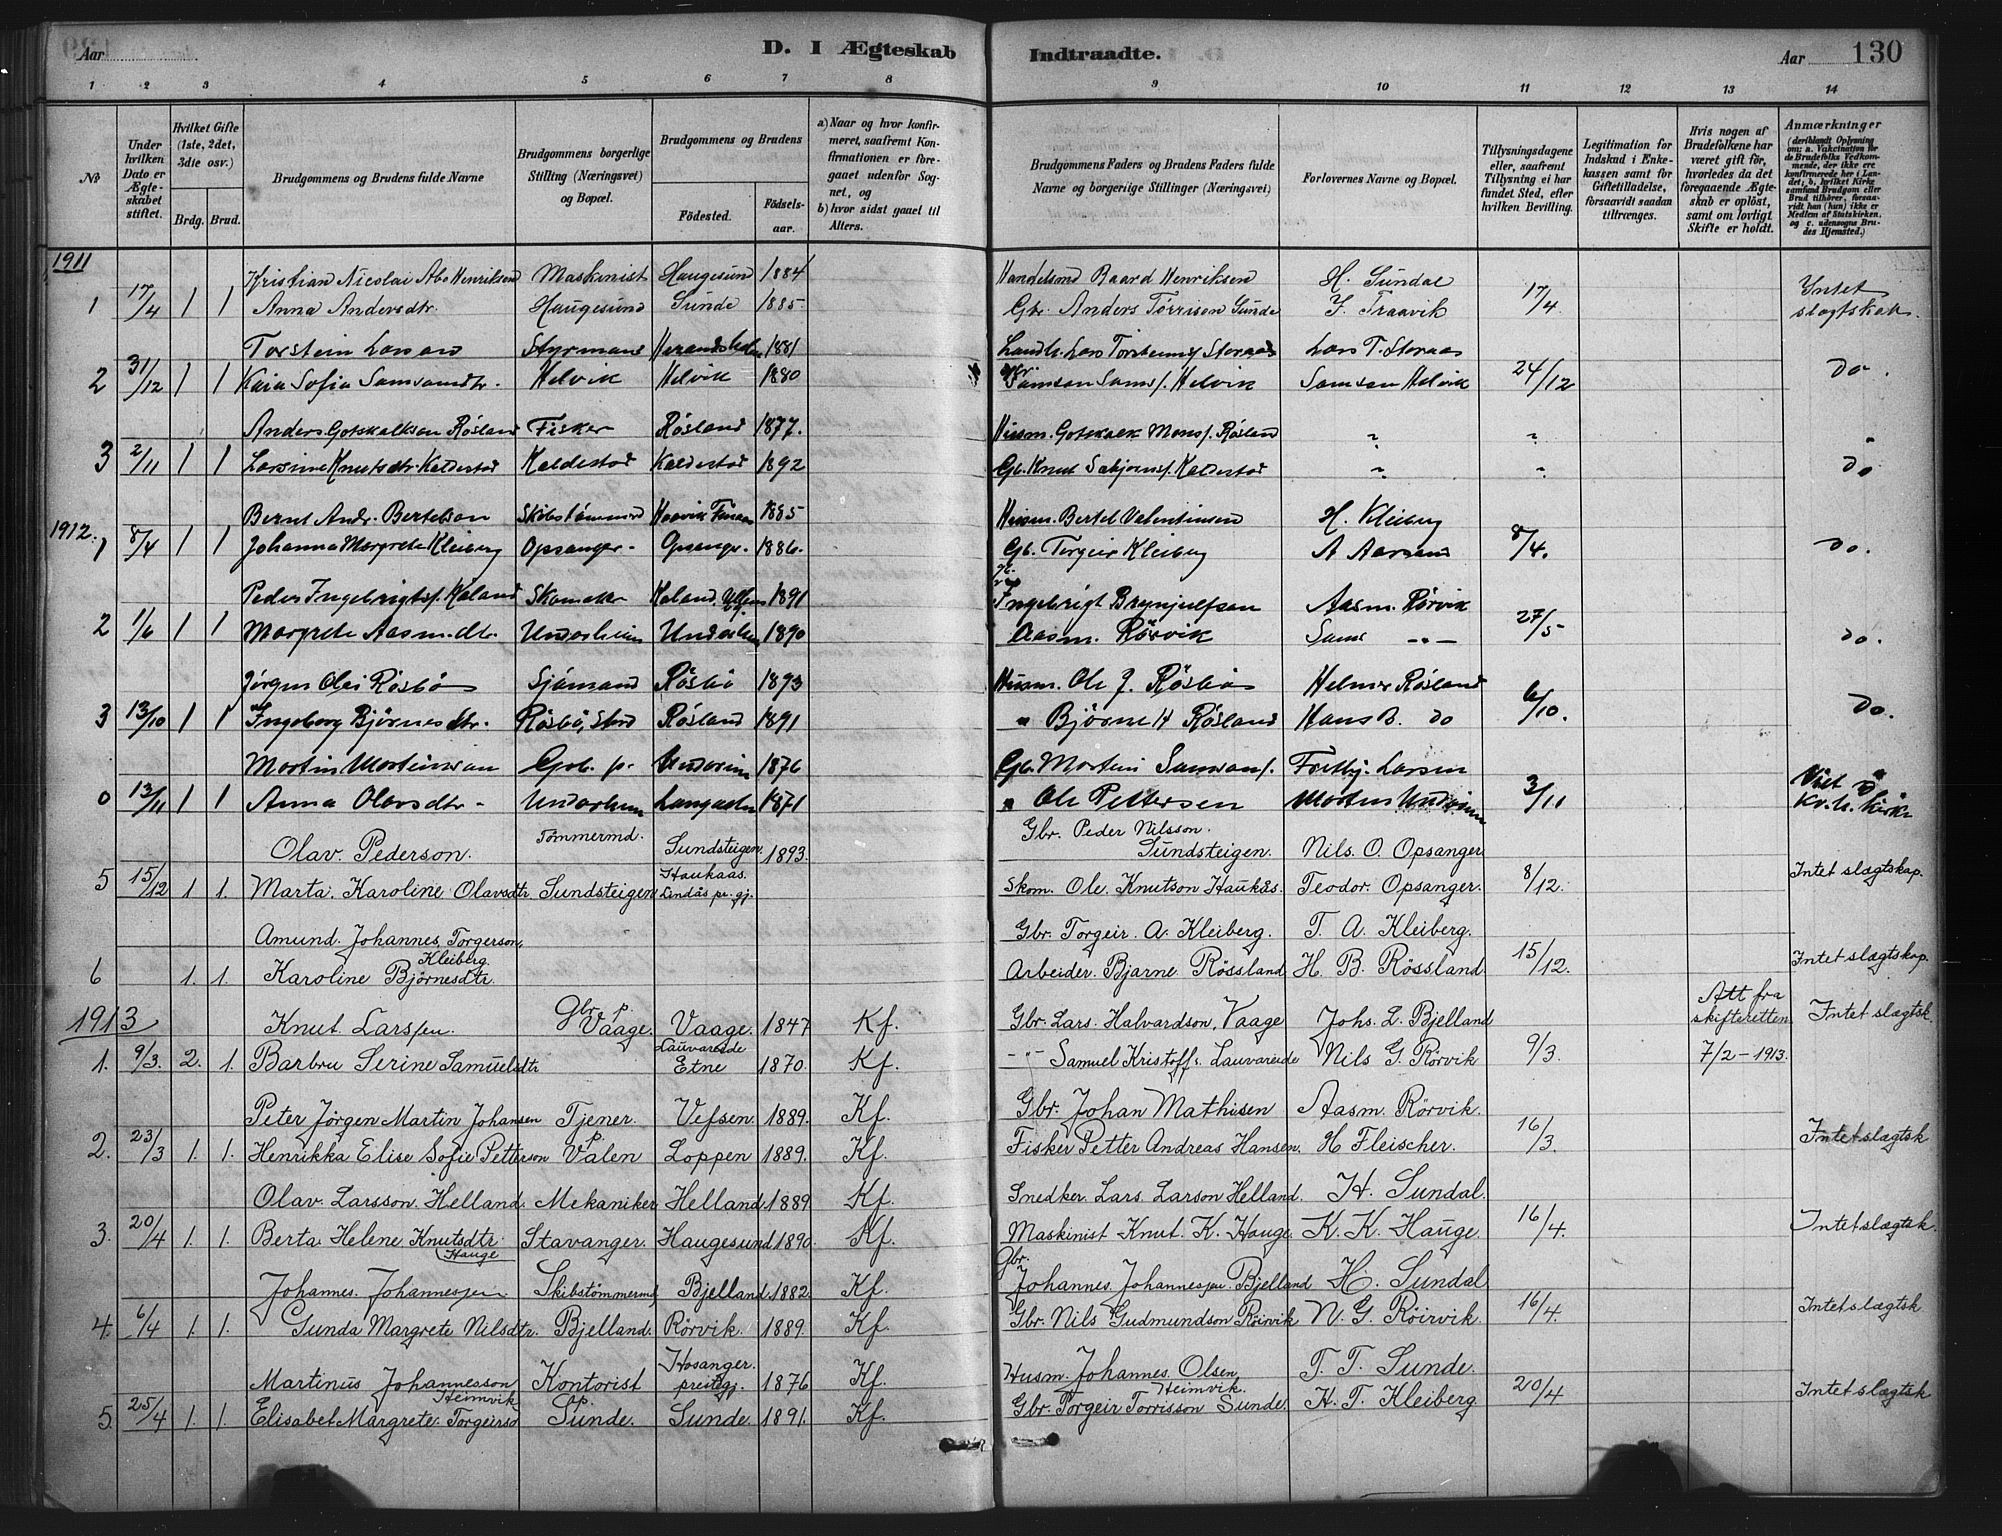 Aar
D. I Ægteskab
Indtraadte.
Aar 130
1 2 3 4 5 6 7 8 9 10 11 12 13 14
No
Under hvilken Dato er Ægteskabet stiftet.
Hvilket Gifte (1ste, 2det, 3die osv.)
Brdg. Brud.
Brudgommens og Brudens fulde Navne
Brudgommens borgerlige Stilling (Næringsvei) og Bopæl.
Brudgommens og Brudens
Födested. Födselsaar.
a) Naar og hvor konfirmeret, saafremt Konfirmationen er foregaaet udenfor Sognet, og
b) hvor sidst gaaet til Alters.
Brudgommens Faders og Brudens Faders fulde Navne og borgerlige Stillinger (Næringsvei)
Forlovernes Navne og Bopæl.
Tillysningsdagene eller, saafremt Tillysning ei har fundet Sted, efter hvilken Bevilling.
Legitimation for Indskud i Enkekassen samt for Giftetilladelse, forsaavidt saadan tiltrænges.
Hvis nogen af Brudefolkene har været gift för, hvorledes da det foregaaende Ægteskab er oplöst, samt om lovligt Skifte er holdt.
Anmærkninger (deriblandt Oplysning om: a. Vaccination for de Brudefolks Vedkommende, der ikke ere konfirmerede her i Landet; b. hvilket Kirkesamfund Brudgom eller Brud tilhörer, forsaavidt han (hun) ikke er Medlem af Statskirken, og c. udensogns Brudes Hjemsted.)
1911
Kristian Nicolai Abo Henriksen Maskinist Haugesund 1884 Handelsmd Baard Henriksen H. Sundal
1 17/4 1 1 Anna Andersdtr. Haugesund Sunde 1885. Gbr. Anders Törrisen Sunde Y. Traavik 17/4 Intet slægtskab.
Torstein Larsen Styrmand 1881 Lars T. Storaas
2 31/12 1 1 Kaia Sofia Samsonsdtr. Helvik Helvik 1880 Samson Sams/. Helvik Samson Helvik 24/12 Do.
Anders Gotskalksen Røsland Fisker Røsland 1877. Husm. Gotskalk Mons/. Røsland " "
3 2/11 1 1 Larsine Knutsdtr. Kaldestad Kaldestad Kaldestad 1892 Gb. Knut Kaldestad " " Do
Bernt Andr. Bertelsen 1885 Husm. Bertel Valentinsen H. Kleiberg
1912. 1 8/4 1 1 Johanna Margrete Kleiberg Opsanger - Opsangr. 1886. Gb. Torgeir Kleiberg A Aarsand 8/4. Do.
Peder Ingebrigts/. Høland Skomaker 1891 Ingebrigt Brynjulfsen Aasm. Rørvik
2 1/6 1 1 Margrete Aasm.dtr. Undarheim 1890 Aasm. Rørvik Sams " - 27/5 Do.
Jørgen Olai Røsbø Sjömand Røsbø 1893 Husm. Ole J. Røsbø Helmer Røsland
3 13/10 1 1 Ingeborg Bjørnesdtr. Røsbø, Stord Røsland 1891 " Bjørne H Røsland Hans B. Do 6/10. Do.
Martin Martinsen Grb. p. 1876 Gb. Martin Samson/. Fertby. Larsen
0 13/11 1 1 Anna Olavsdtr - 1871 " Ole Pettersen 3/11 Viet
Olav. Pederson. Tömmermd. Sundsteigen. 1893. Gbr. Peder Nilsson. Sundsteigen. Nils. O. Opsanger
5 15/12 1. 1. Marta. Karoline Olavsdtr. Sundsteigen Haukaas. Lindås pr. gj. Skom. Ole. Knutson Haukås. Teodor. Opsanger. 8/12. Intet slægtskap.
Amund. Johannes. Torgerson. Kleiberg. Gbr. Torgeir. A. Kleiberg. T. A. Kleiberg.
6 1. 1. Karoline Bjørnesdtr. Arbeider. Bjarne. Røssland H. B. Røssland. 15/12. Intet slægtskap.
1913 Knut. Larssen. Gbr. p. Vaage. Vaage. 1847 Kf. Gbr. Lars. Halvardson, Vaage Johs. L. Bjelland Att fra skifteretten Intet slægtsk.
1. 9/3. 2. 1. Barbru Serine Samuelsdtr Lauvareide Etne 1870. Kf. -"- Samuel Kristoff s. Lauvareide Nils G. Rørvik 9/3. 7/2 - 1913.
Peter Jørgen Martin Johansen Tjener. Vefsen. 1889. Kf. Gbr. Johan Mathisen Aasm. Rörvik.
2. 23/3 1. 1. Henrikka Elise Sofie Petterson p Valen Loppen 1889. Kf. Fisker Petter Andreas Hansen. H Fleischer. 16/3. Intet slægtsk
Olav. Larsson. Helland. Mekaniker Helland. 1889 Kf. Snedker. Lars. Larson Helland. H. Sundal.
3. 20/4 1. 1. Berta Helene Knutsdtr. (Hauge Stavanger. Haugesund 1890. Kf. Maskinist Knut. K. Hauge. K. K. Hauge. 16/4. Intet slægtsk.
Johannes. Johannessen. Skibstömmermd, Bjelland. 1882. Kf. Gbr. Johannes. Johannessen. Bjelland H. Sundal
4. 6/4 1. 1. Gunda Margrete Nilsdtr. Bjelland. Rörvik. 1889. Kf. Gbr. Nils Gudmundson Röirvik N. G. Röirvik 16/4. Intet slægtsk
Martinus Johannesson Heimvik Kontorist Hosanger. prestegj. 1876 Kf. Husm. Johannes. Olsen, Heimvik. T. T. Sunde.
5. 25/4 1. 1. Elisabet Margrete. Torgeirsd p. Sunde. Sunde. 1891. Kf. Gbr. Torgeir Torrisson Sunde. H. T. Kleiberg 20/4 Intet slægtsk